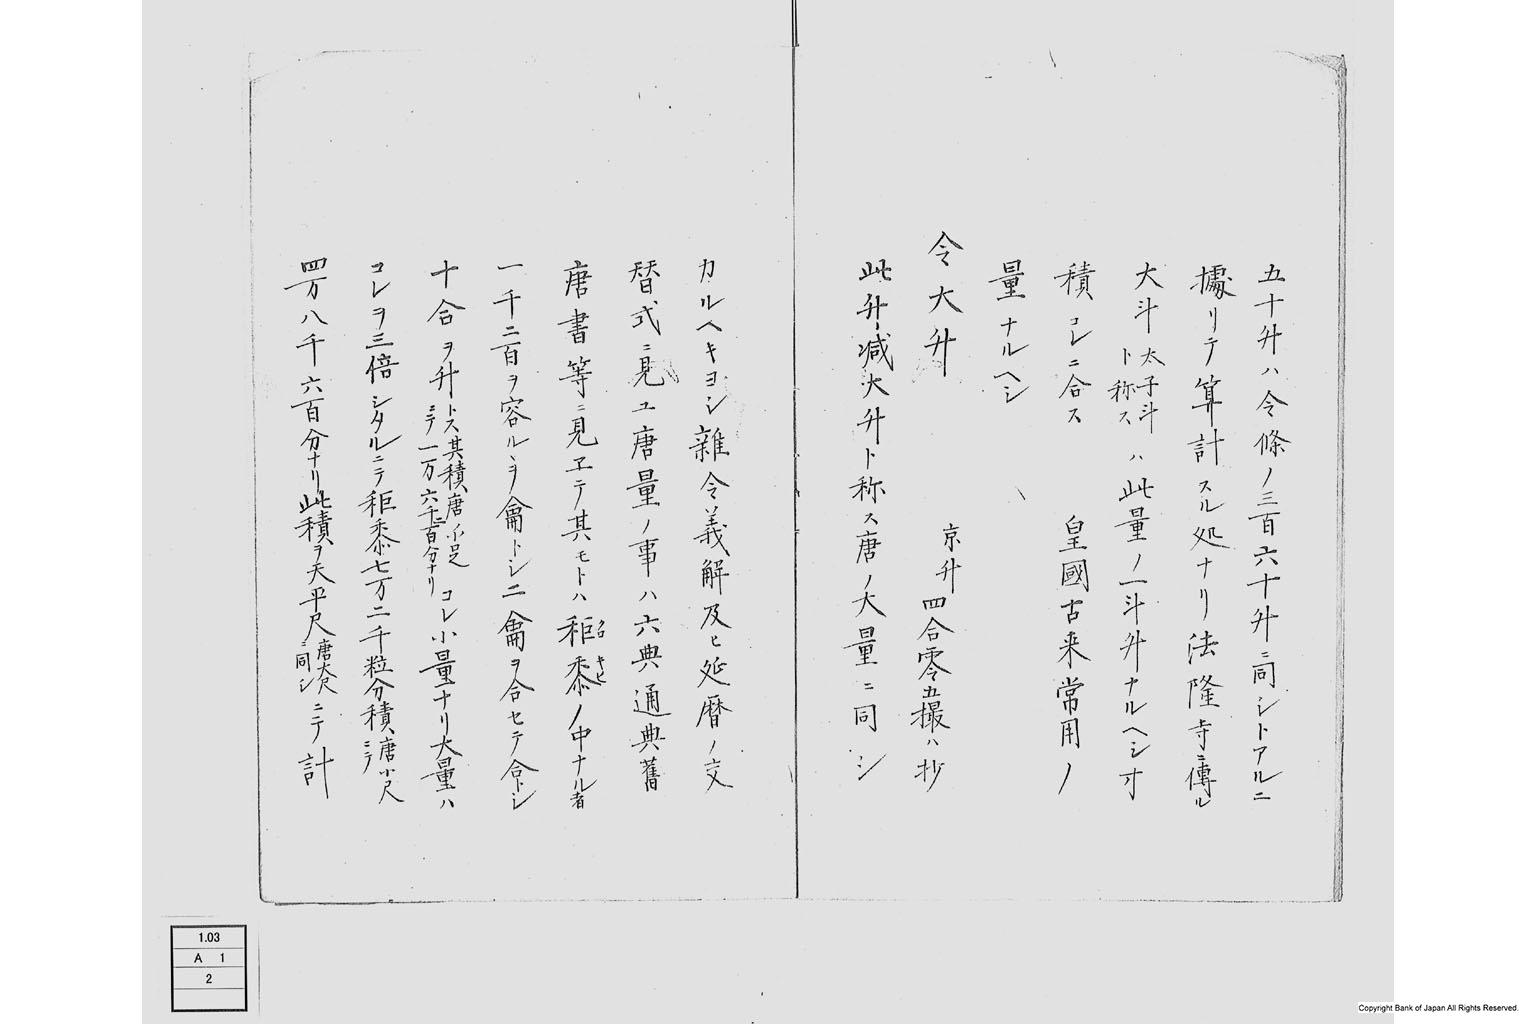 五十升ハ令條ノ三百六十升ニ同シトアルニ
據リテ算計スル処ナリ法隆寺ニ傳ル
大斗太子斗ト称スハ此量ノ一斗升ナルヘシ寸
積コレニ合ス　皇國古来常用ノ
量ナルヘシ
令大升　京升四合零五撮ハ抄
此升減大升ト称ス唐ノ大量ニ同シ
カルヘキヨシ雜令義解及ヒ延暦ノ交
替式ニ見ユ唐量ノ事ハ六典通典舊
唐書等ニ見ヱテ其モトハ秬黍クロキビノ中ナル者
一千二百ヲ容ルヽヲ龠トシ二龠ヲ合セテ合トシ
十合ヲ升トス其積唐小尺ニテ一万六千二百分ナリコレ小量ナリ大量ハ
コレヲ三倍シタルニテ秬黍七万二千粒分積唐小尺ニテ
四万八千六百分ナリ此積ヲ天平尺唐大尺ニ同シニテ計
1.03
A 1
2
Copyright Bank of Japan All Rights Reserved.